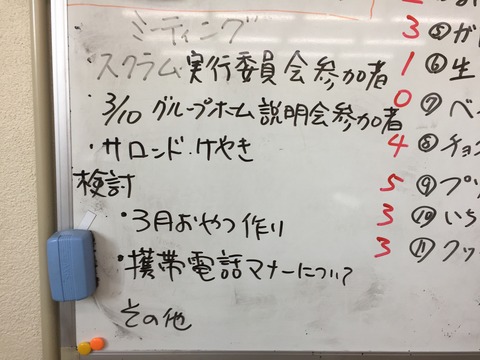 ミーティング
・スクラム実行委員会参加者
・3/10 グループホーム説明会参加者
・サロンド.けやき
検討
・3月おやつ作り
・携帯電話マナーについて
その他
3 ⑤ガ
1 ⑥生
0 ⑦ベ
4 ⑧チョ
5 ⑨プ
3 ⑩いち
3 ⑪クッ